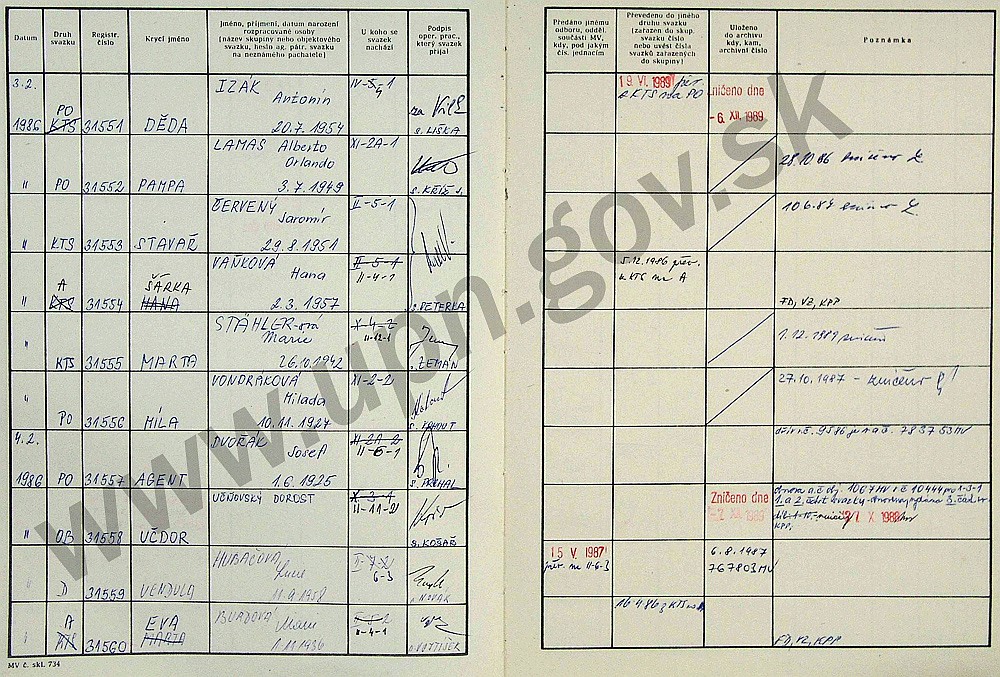 Datum
Druh svazku
Registr. číslo
Krycí jméno
Jméno, příjmení, datum narození rozpracované osoby (název skupiny nebo objektového svazku, heslo ag. pátr. svazku na neznámého pachatele)
U koho se svazek nachází
Podpis oper. prac., který svazek přijal
Předáno jinému odboru, odděl. součásti MV, kdy, pod jakým čís. jednacím
Převedeno do jiného druhu svazku (zařazen do skup. svazku číslo nebo uvést čísla svazků zařazených do skupiny)
Uloženo do archivu kdy, kam, archivní číslo
Poznámka
3.2. 1986 PO KTS 31551 DĚDA IZÁK Antonín 20.7.1954 IV-5-1 za s. LIŠKA 19. VI. 1989 z KTS na PO Zničeno dne -6. XII. 1989
" PO 31552 PAMPA LAMAS Alberto Orlando 3.7.1949 XI-2A-1 s. KŘÍŽ 28.10.86 zničeno
" KTS 31553 STAVAŘ ČERVENÝ Jaromír 29.8.1951 II-5-1 10.6.87
" A KTS 31554 ŠÁRKA HANA VAŇKOVÁ Hana 2.3.1957 II-5-1 II-4-1 s. PETERKA 5.12.1986 přev. z KTS na A FD, VZ, KPP
" KTS 31555 MARTA STÄHLER-ová Marie 26.10.1942 X-4-2 II-12-1 s. ZEMAN 1.12.1989 zničeno
" PO 31556 MÍLA VONDRÁKOVÁ Milada 10.11.1927 XI-2-2 s. KOHOUT 27.10.1987 - zničeno
4.2. 1986 PO 31557 AGENT DVOŘÁK Josef 1.6.1925 XI-2A-2 II-6-1 s. PŘCHAL
" OB 31558 UČDOR UČŇOVSKÝ DOROST X-3-1 II-11-2 s. KOŠAŘ Zničeno dne XII. 1989 KPP,
" D 31559 VENDULA HUBAČOVÁ 11.9.1958 II-7-2 6-3 s. NOVÁK 15. V. 1987 př. na II-6-3 6.8.1987 767803 MV
A KTS 31560 EVA MARTA BURDOVÁ Marie 11.11.1936 II-5-2 II-4-1 s. VOJTÍŠEK FD, VZ, KPP
MV č. skl. 734
www.upn.gov.sk